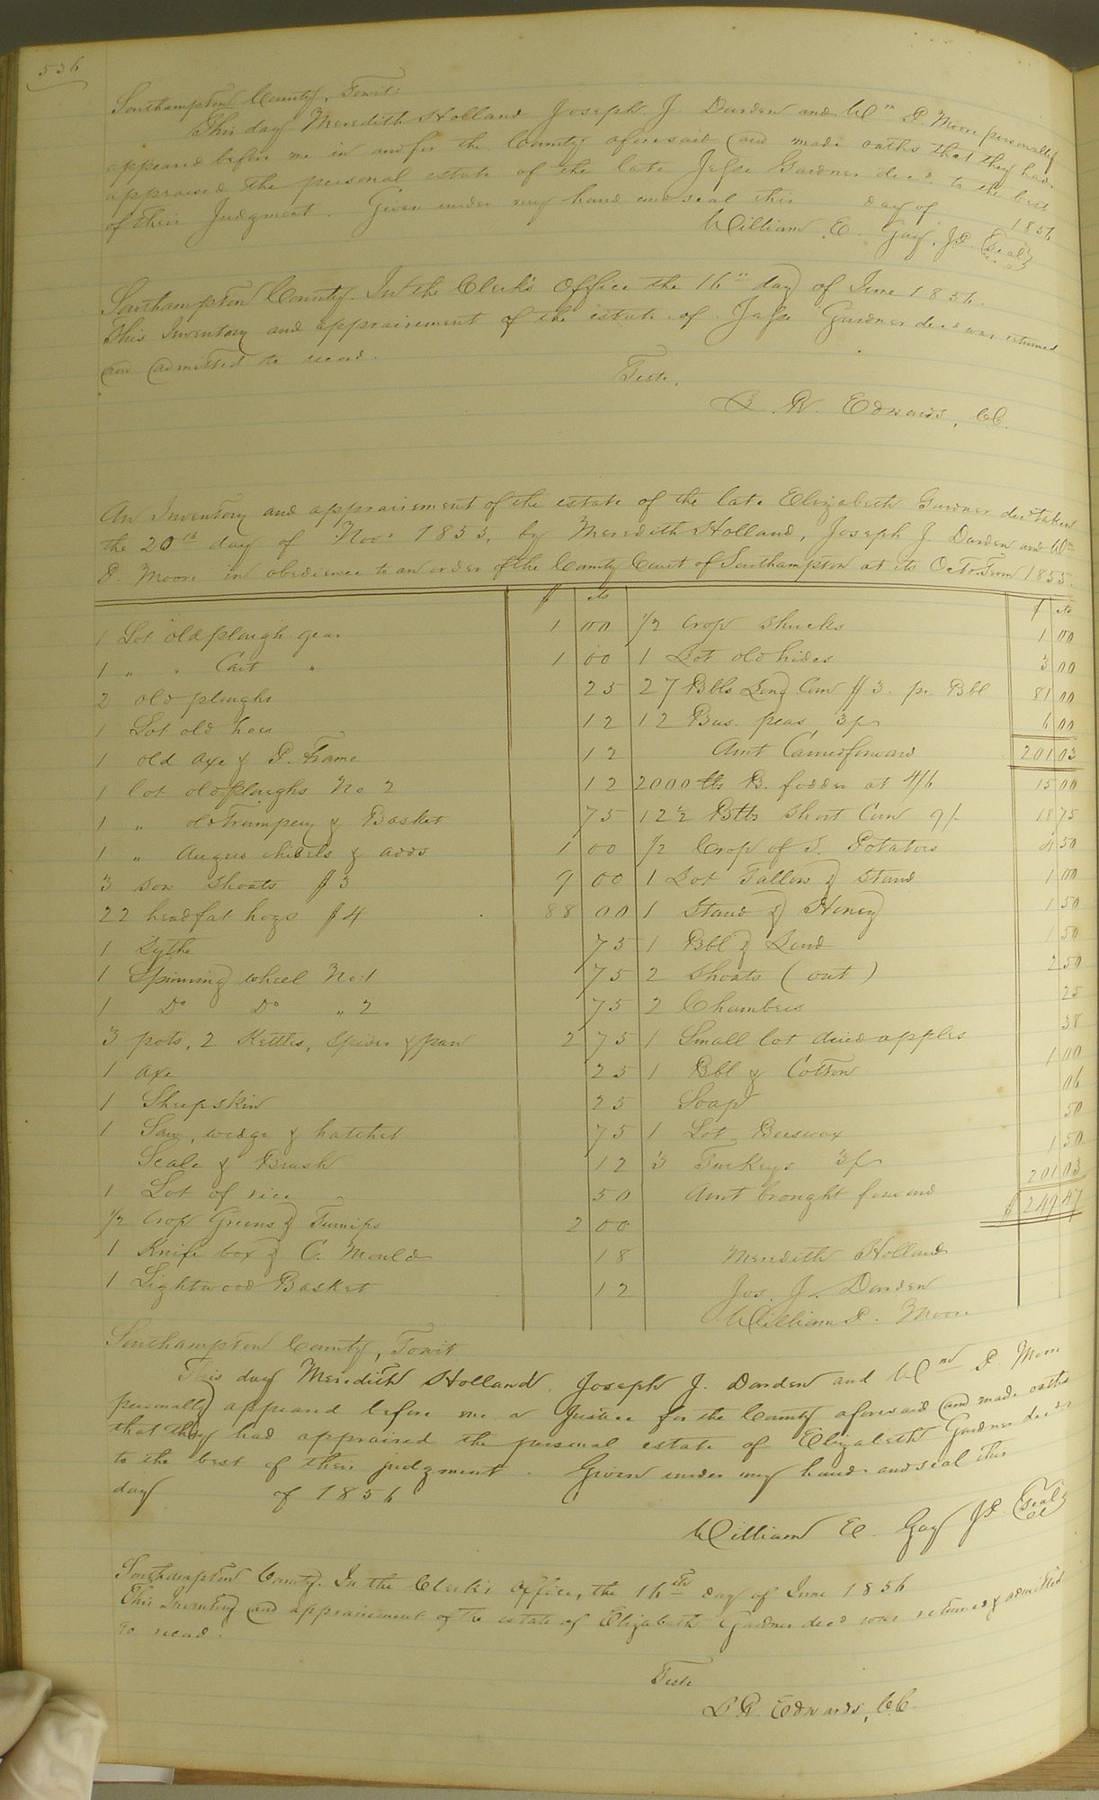 536
Southampton County, Towit:
This day Meredith Holland Joseph J. Darden and Wm P. Moore personally
appeared before me in and for the County aforesaid and made oaths that they have
appraised the personal estate of the late Jesse Gardner decd to the best
of their Judgment. Given under my hand and seal this day of 1856
William E. Gay, J.P. (Seal)
Southampton County. In the Clerk's Office the 16th day of June 1856.
This Inventory and appraisement of the estate of Jesse Gardner decd was returned
and admitted to record.
Teste,
L. R. Edwards, CC.
An Inventory and appraisement of the estate of the late Elizabeth Gardner decd taken
the 20th day of Nov: 1855, by Meredith Holland, Joseph J. Darden and Wm
P. Moore in obedience to an order of the County Court of Southampton at its Oct. Term 1855.
$ cts $ cts
1 Lot old plough gear 1 00 1/2 Crop Shucks 1 00
1 " " Cart " 1 00 1 Lot old hides 3 00
2 old ploughs 25 27 Bbls Long Corn $3. pr Bbl 81 00
1 Lot old hoes 12 12 Bus. peas 3/ 6 00
1 old axe & P. Frame 12 Amt Carried forward 201 03
1 lot old ploughs No 2 12 2000 lbs B. fodder at 4/6 15 00
1 " old Trumpery & Basket 75 12 1/2 Bbls Short Corn 9/- 18 75
1 " Augurs chisels & adds 1 00 1/2 Crop of S. Potatoes 4 50
3 sow Shoats $3 9 00 1 Lot Tallow & Stand 1 00
22 head fat hogs $4 88 00 1 Stand & Honey 1 50
1 Sythe 75 1 Bbl & Lard 1 50
1 Spinning wheel No 1 75 2 Shoats (out) 2 50
1 Do Do " 2 75 2 Chambers 25
3 pots, 2 Kettles, Spider & pan 2 75 1 Small lot dried apples 38
1 axe 25 1 Bbl & Cotton 1 00
1 Sheepskin 25 Soap 06
1 Saw, wedge & hatchet 75 1 Lot Beeswax 50
Scale & Brush 12 3 Turkeys 3/ 1 50
1 Lot of rice 50 Amt brought forward 201 03
1/2 Crop Greens & Turnips 2 00 $ 249 47
1 Knife box & C. Mould 18 Meredith Holland
1 Lightwood Basket 12 Jos. J. Darden
William P. Moore
Southampton County, Towit
This day Meredith Holland, Joseph J. Darden and Wm P. Moore
personally appeared before me a Justice for the County aforesaid and made oaths
that they had appraised the personal estate of Elizabeth Gardner decd
to the best of their judgment. Given under my hand and seal this
day of 1856
William E. Gay J.P. (Seal)
Southampton County. In the Clerk's Office, the 16th day of June 1856
This Inventory and appraisement of the estate of Elizabeth Gardner decd was returned & admitted
to record.
Teste
L R. Edwards, CC.